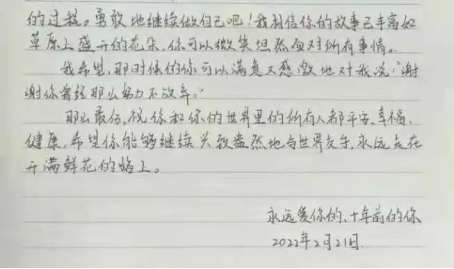 的过程。勇敢地继续做自己吧!我相信你的故事已丰富如
草原上盛开的花朵,你可以微笑坦然面对所有事情。
我希望,那时候的你可以满意又感激地对我说:“谢
谢你曾经那么努力不放弃。”
那么最后,祝你和你的世界里的所有人都平安、幸福、
健康,希望你能够继续兴致盎然地与世界交手,永远走在
开满鲜花的路上。
永远爱你的、十年前的你
2022年2月21日